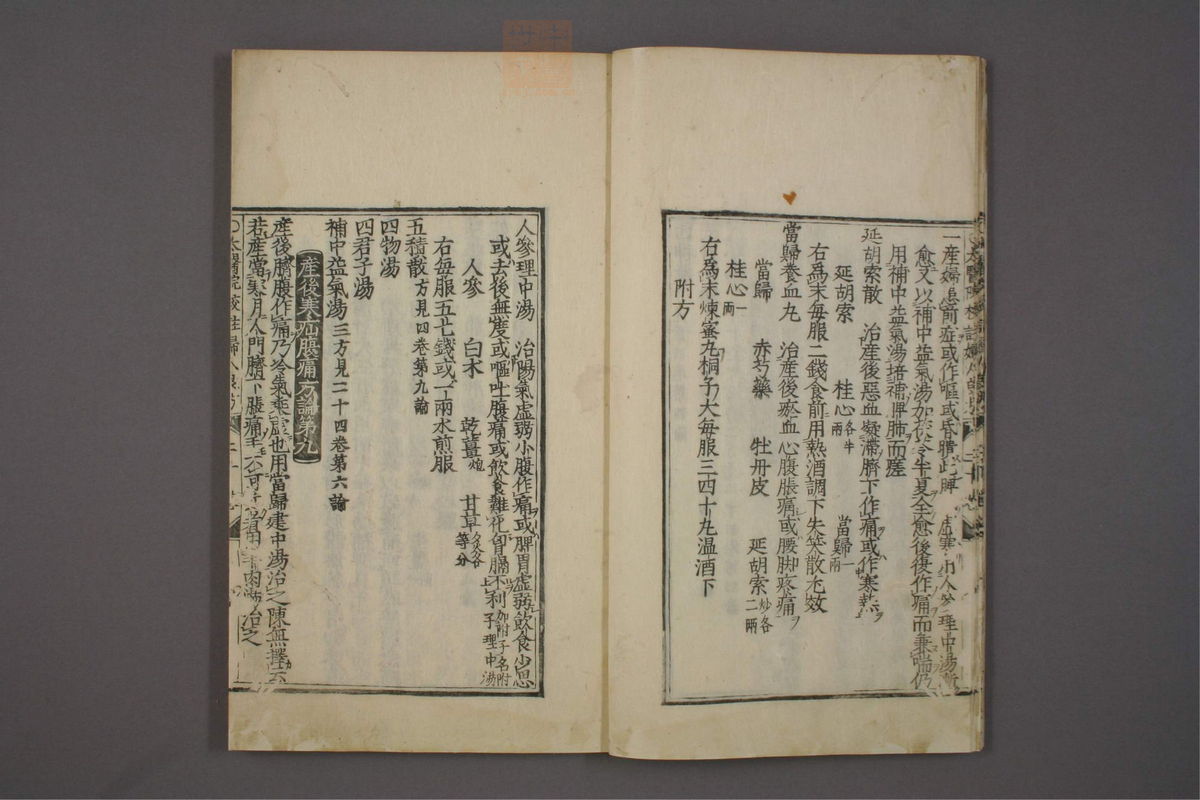 一産婦患前症或作嘔或昏憒此脾 虚寒用人參理中湯漸
愈又以補中益氣湯加茯苓半夏全愈後復作痛而兼喘仍
用補中益氣湯培補脾肺而瘥
延胡索散 治産後惡血凝滯臍下作痛或作寒熱
延胡索 桂心各半兩 當歸一兩
右爲末每服二錢食前用熱酒調下失笑散尤效
當歸養血丸 治産後瘀血心腹脹痛或腰脚疼痛
當歸 赤芍藥 牡丹皮 延胡索炒各二兩
桂心一兩
右爲末煉蜜丸桐子大每服三四十丸温酒下
附方
人參理中湯 治陽氣虚弱小腹作痛或脾胃虚弱飲食少思
或去後無度或嘔吐腹痛或飲食難化胷膈不利加附子名附子理中湯
人參 白术 乾薑炮 甘草炙各等分
右每服五七錢或一兩水煎服
五積散方見四卷第九論
四物湯
四君子湯
補中益氣湯三方見二十四卷第六論
産後寒疝腹痛方論第九
産後臍腹作痛乃冷氣乘虚也用當歸建中湯治之陳無擇云
若産當寒月入門臍下脹痛手不可 羊肉湯治之
〇太醫院校註婦人良方